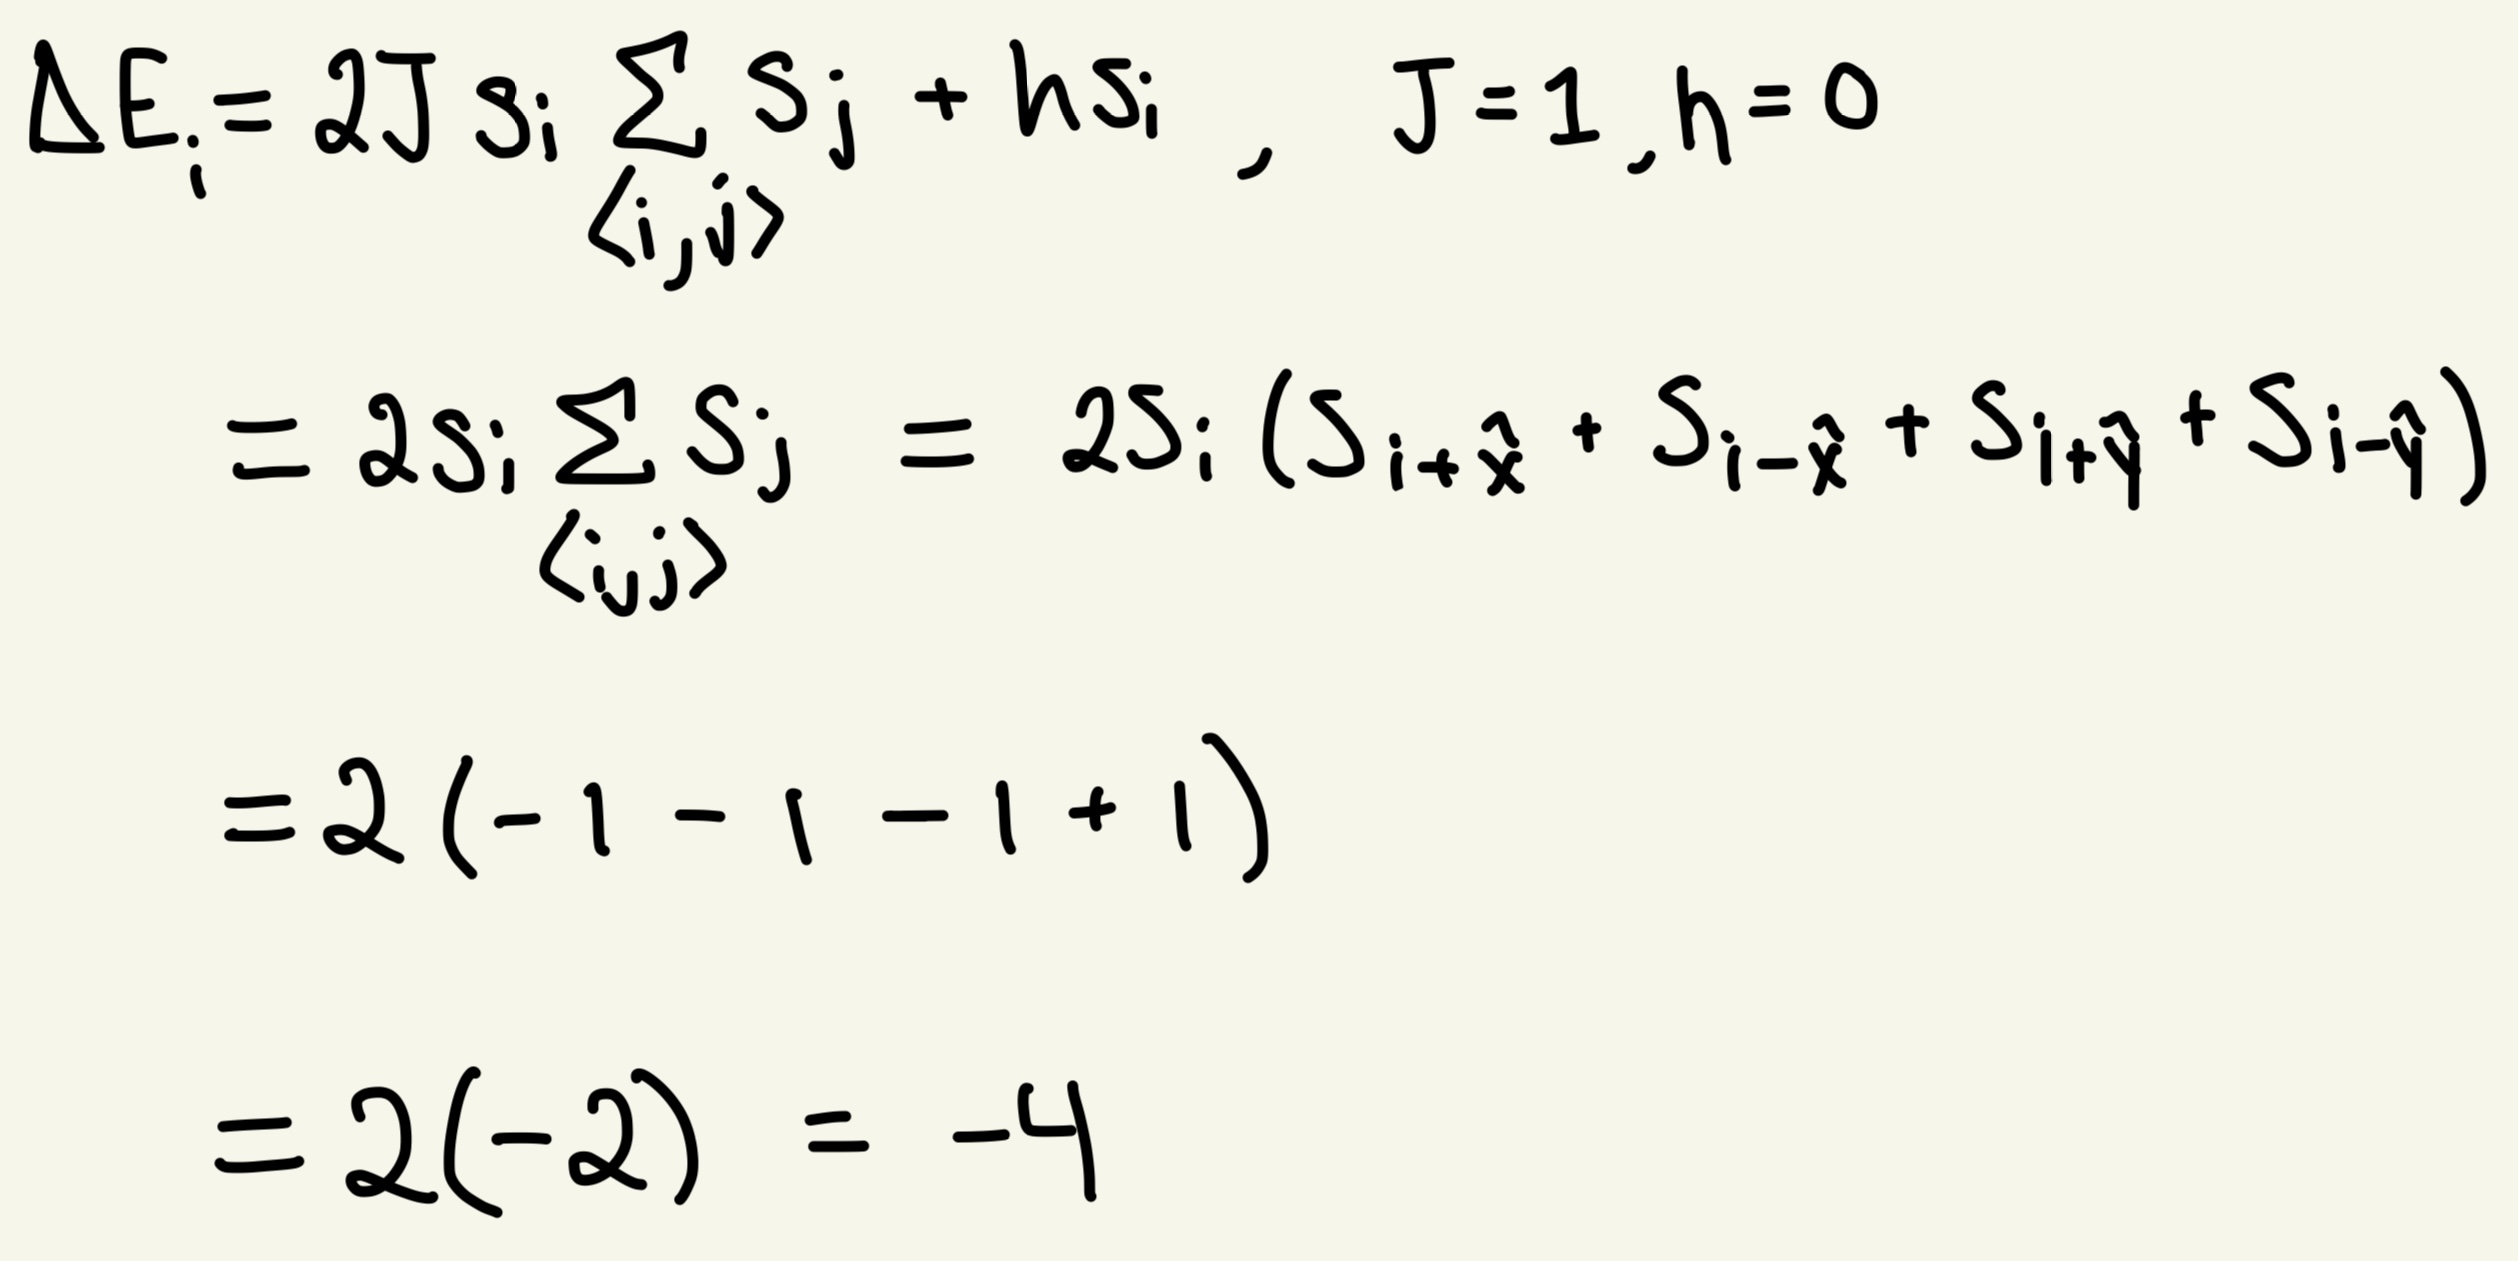 ΔE_i = 2J s_i Σ_{<i,j>} s_j + h s_i , J = 1 , h = 0
= 2 s_i Σ_{<i,j>} s_j = 2 s_i (s_{i+x̂} + s_{i-x̂} + s_{i+ŷ} + s_{i-ŷ})
= 2 (-1 - 1 - 1 + 1)
= 2(-2) = -4